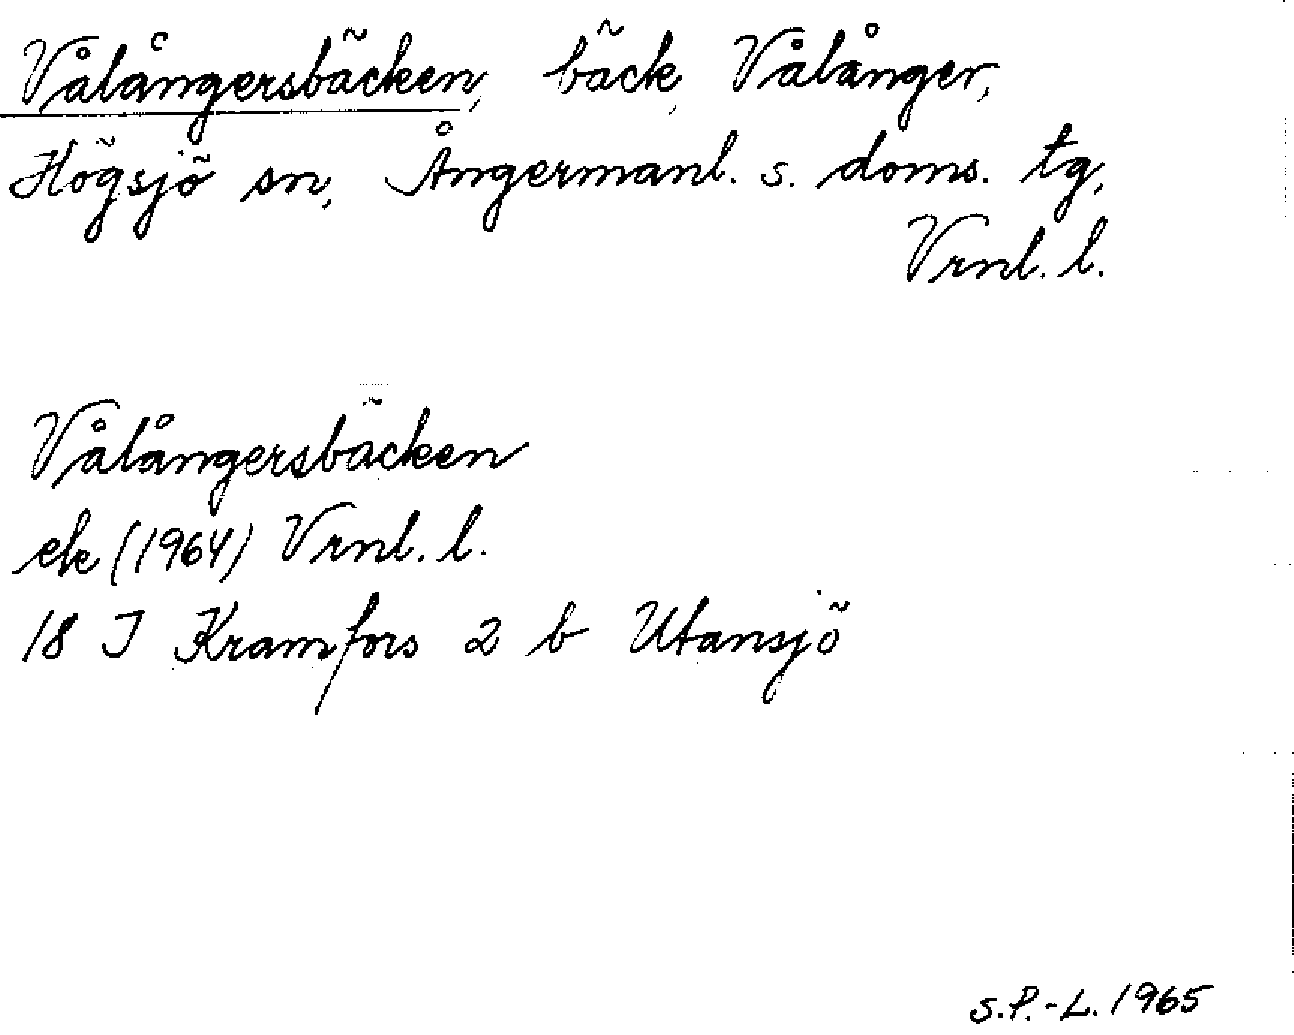 Vålångersbäcken, bäck, Vålånger,
Högsjö sn, Ångermanl. s. doms. tg,
Vrnl. l.
Vålångersbäcken
ek (1964) Vrnl. l.
18 I Kramfors 2 b Utansjö
S.P.-L. 1965